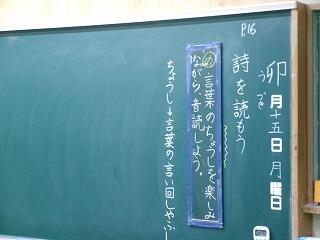 P.16
卯月十五日月曜日
うづき
詩を読もう
め言葉のちょうしを楽しみ
ながら、音読しよう。
ちょうし→言葉の言い回しやふし